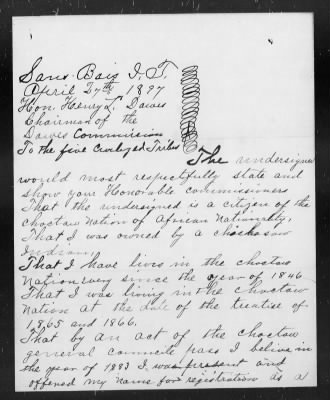 Sans Bois I.T.
April 27th 1897
Hon. Henry L. Dawes
Chairman of the
Dawes Commission
To the five Civilized Tribes
The undersigned
would most respectfully state and
show your Honorable commissioners
That the undersigned is a citizen of the
Choctaw Nation of African Nationality.
That I was owned by a chickasaw
Indian.
That I have lives in the choctaw
Nation ever since the year of 1846
That I was living in the Choctaw
Nation at the date of the treatise of
1865 and 1866.
That by an act of the choctaw
general pass I believe in
the year of 1883 I was present and
offered my name for registration as a